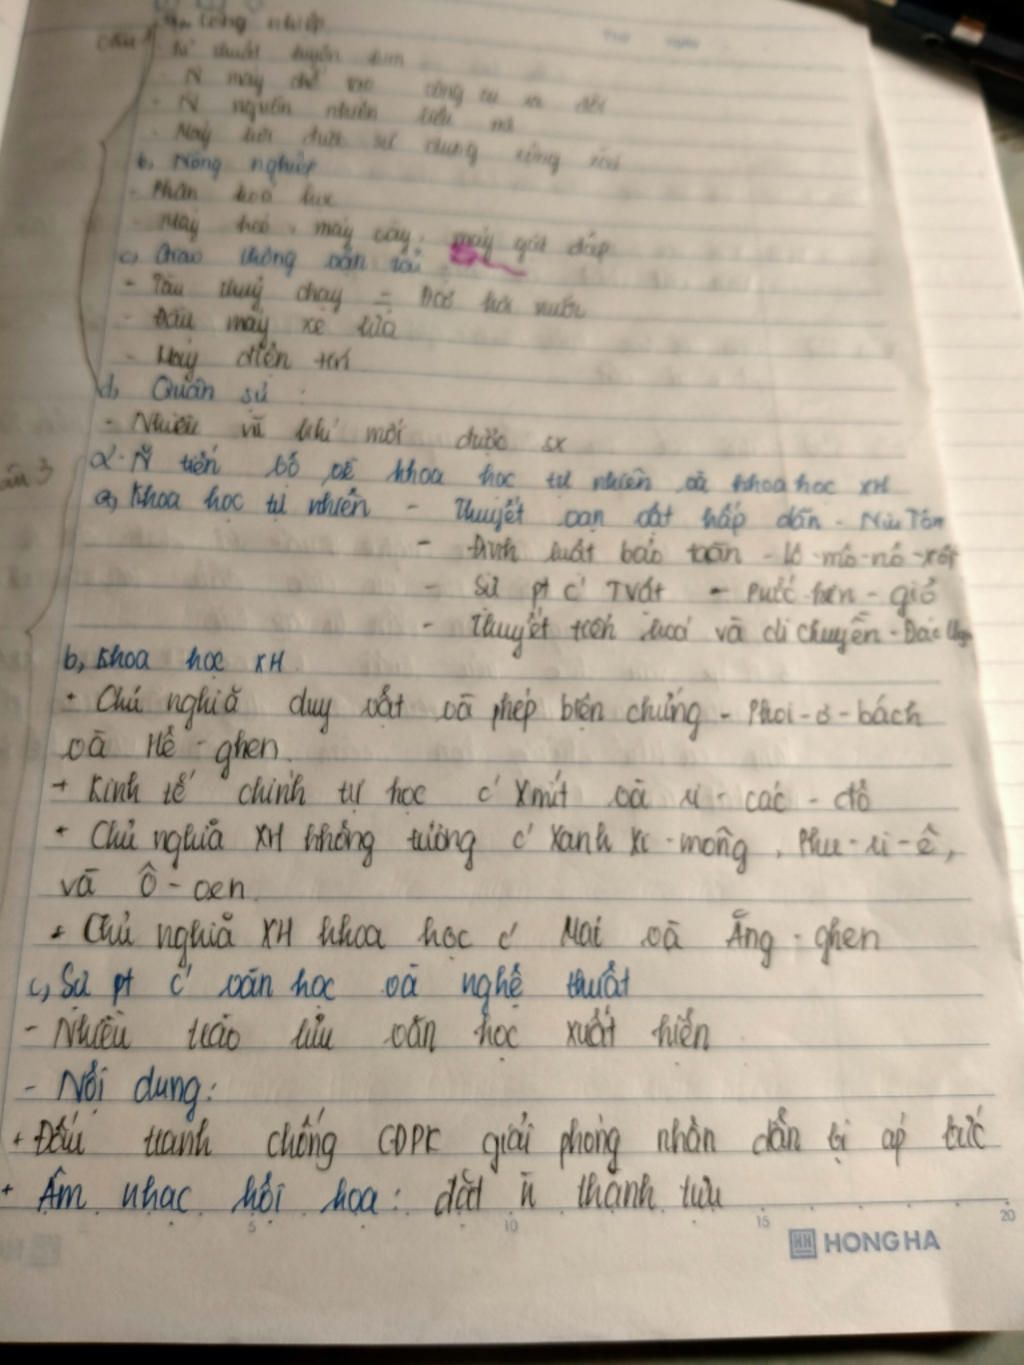 công nghiệp
Câu
- Kĩ thuật luyện kim
- Ñ máy chế tạo công cụ ra đời
- Ñ nguồn nhiên liệu mới
- Máy hơi được sử dụng rộng rãi
b, Nông nghiệp
- Phân hoá học
- Máy kéo, máy cày, máy gặt đập
c, Giao thông vận tải
- Tàu thuỷ chạy = hơi nước
- Đầu máy xe lửa
- Máy điện tín
d, Quân sự :
- Nhiều vũ khí mới được sx
Câu 3
2. Ñ tiến bộ về khoa học tự nhiên và khoa học XH
a, Khoa học tự nhiên - Thuyết vạn vật hấp dẫn - Niu Tơn
- Định luật bảo toàn - Lô-mô-nô-xốp
- Sự pt c' TVật - Puốc-kin-giơ
- Thuyết tiến hoá và di chuyền - Đác
b, Khoa học XH
+ Chủ nghĩa duy vật và phép biện chứng - Phoi-ơ-bách
và Hê-ghen.
+ Kinh tế chính tự học c' Xmít và Ri-các-đô
+ Chủ nghĩa XH không tưởng c' Xanh Xi-mông, Phu-ri-ê,
và Ô-oen
+ Chủ nghĩa XH khoa học c' Mai và Ăng-ghen
c, Sự pt c' văn học và nghệ thuật
- Nhiều trào lưu văn học xuất hiện
- Nội dung:
+ Đấu tranh chống CĐPK giải phóng nhân dân bị áp bức
+ Âm nhạc, hội họa: đặt ñ thành tựu
5 10 15 20
HH HONG HA